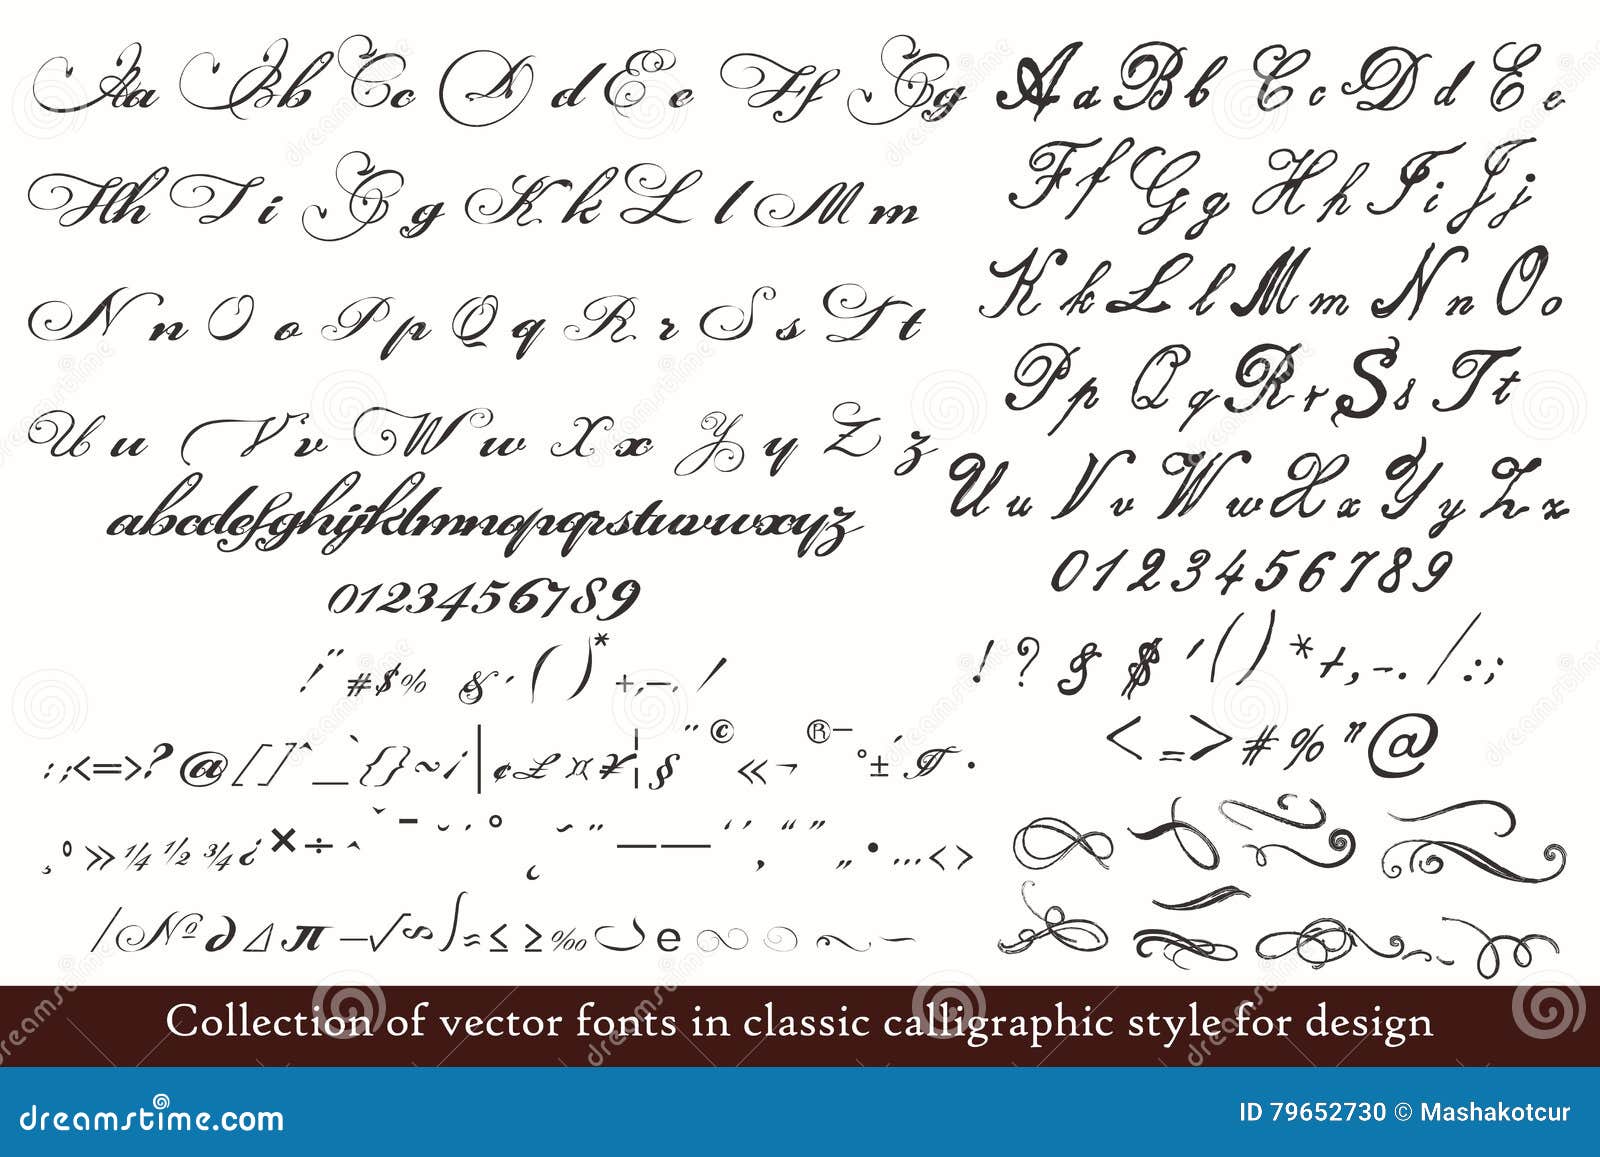 Aa Bb Cc Dd Ee Ff Gg
Hh Ii Gg Kk Ll Mm
Nn Oo Pp Qq Rr Ss Tt
Uu Vv Ww Xx Yy Zz
abcdefghijklmnopqrstuvwxyz
0123456789
!"#$%&'()*+,-./
:;<=>?@[]^_`{}~¡|¢£¤¥¦§¨©«¬®¯°±´
¸º»¼½¾¿×÷
/№∂∆π−√∞∫≈≤≥‰
Aa Bb Cc Dd Ee
Ff Gg Hh Ii Jj
Kk Ll Mm Nn Oo
Pp Qq Rr Ss Tt
Uu Vv Ww Xx Yy Zz
0123456789
!?&$'()*+,-./:;
<=>#%"@
Collection of vector fonts in classic calligraphic style for design
dreamstime.com
ID 79652730 © Mashakotcur